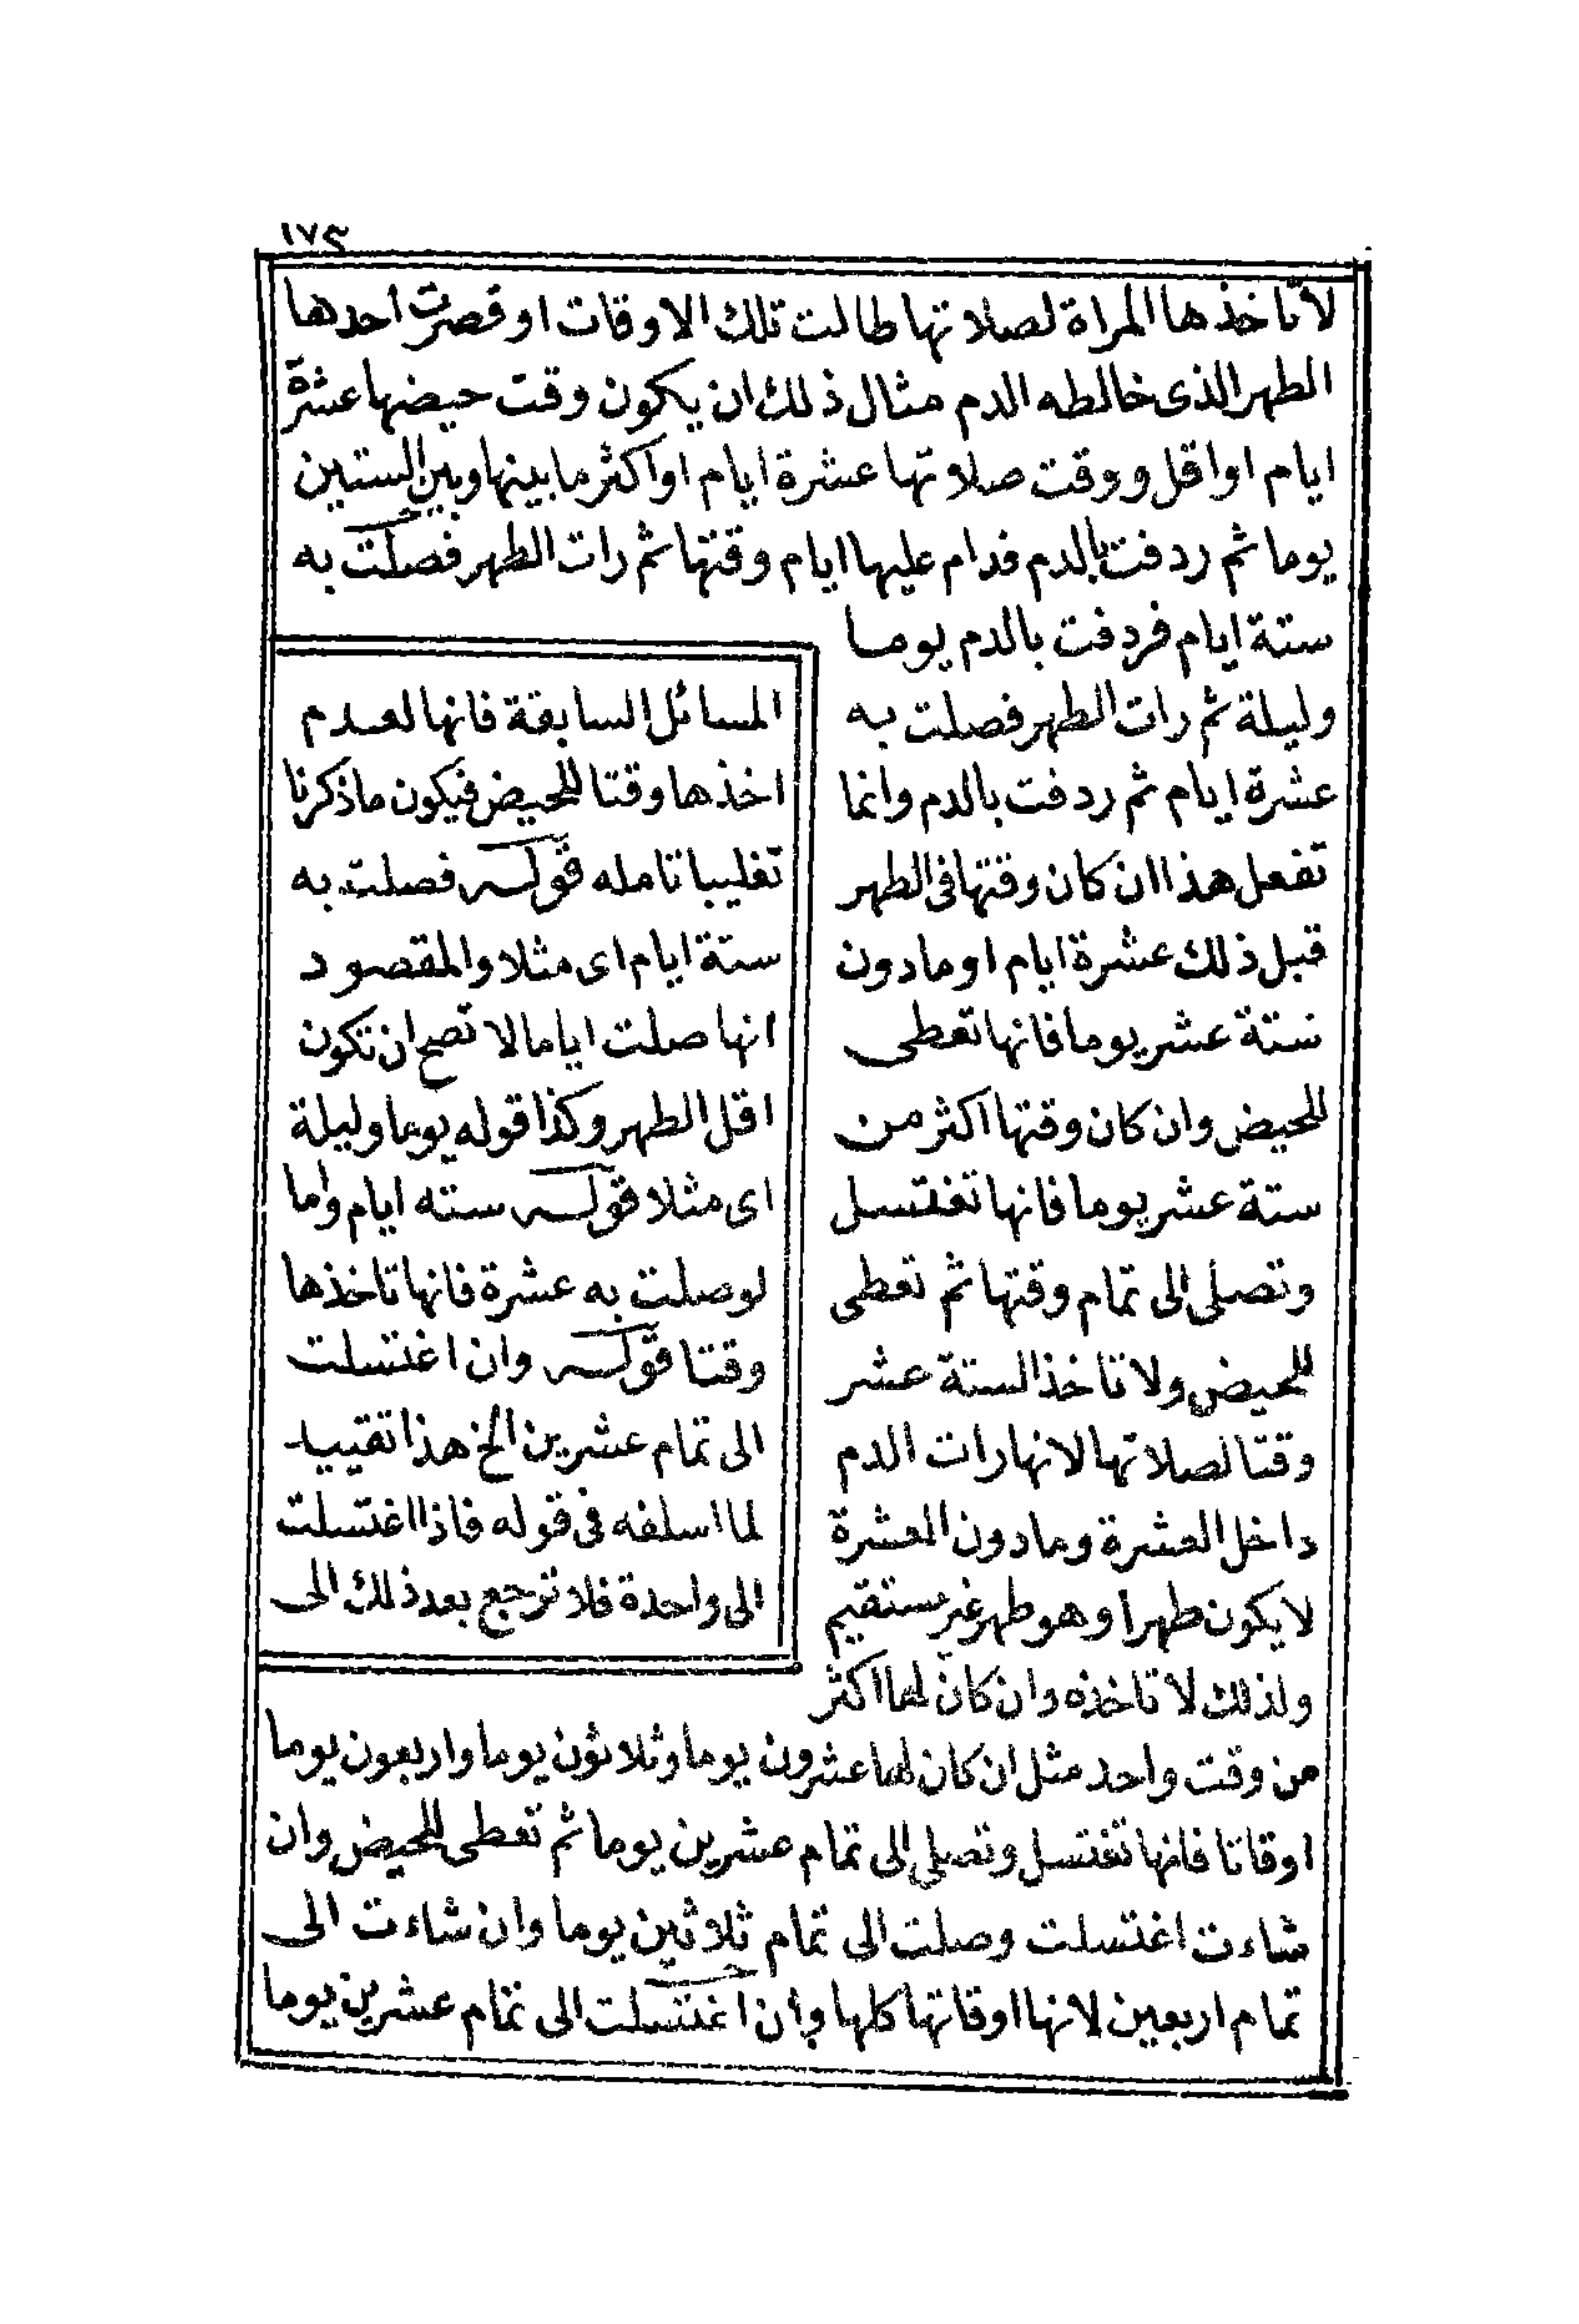 ١٧٤
لا تاخذها المراة لصلاتها طالت تلك الاوقات او قصرت احدها
الطهر الذى خالطه الدم مثال ذلك ان يكون وقت حيضها عشرة
ايام او اقل ووقت صلاتها عشرة ايام او اكثر ما بينها وبين الستين
يوما ثم ردفت بالدم فدام عليها ايام وقتها ثم رات الطهر فصلت به
ستة ايام فردفت بالدم يوما
وليلة ثم رات الطهر فصلت به
عشرة ايام ثم ردفت بالدم وانما
تفعل هذا ان كان وقتها فى الطهر
قبل ذلك عشرة ايام او ما دون
ستة عشر يوما فانها تعطى
للحيض وان كان وقتها اكثر من
ستة عشر يوما فانها تغتسل
وتصلى الى تمام وقتها ثم تعطى
للحيض ولا تاخذ الستة عشر
وقتا لصلاتها لانها رات الدم
داخل العشرة وما دون العشرة
لا يكون طهرا وهو طهر غير مستقيم
ولذلك لا تاخذه وان كان لها اكثر
من وقت واحد مثل ان كان لها عشرون يوما وثلاثون يوما واربعون يوما
اوقاتا فانها تغتسل وتصلى الى تمام عشرين يوما ثم تعطى للحيض وان
شاءت اغتسلت وصلت الى تمام ثلاثين يوما وان شاءت الى
تمام اربعين لانها اوقاتها كلها وان اغتسلت الى تمام عشرين يوما
المسائل السابقة فانها لعدم
اخذها وقتا للحيض فيكون ما ذكرنا
تغليبا تامله قوله فصلت به
ستة ايام اى مثلا والمقصود
انها صلت اياما لا تصح ان تكون
اقل الطهر وكذا قوله يوما وليلة
اى مثلا قوله سته ايام واما
لو صلت به عشرة فانها تاخذها
وقتا قوله وان اغتسلت
الى تمام عشرين الخ هذا تقييد
لما اسلفه فى قوله فاذا اغتسلت
الى واحدة فلا ترجع بعد ذلك الى